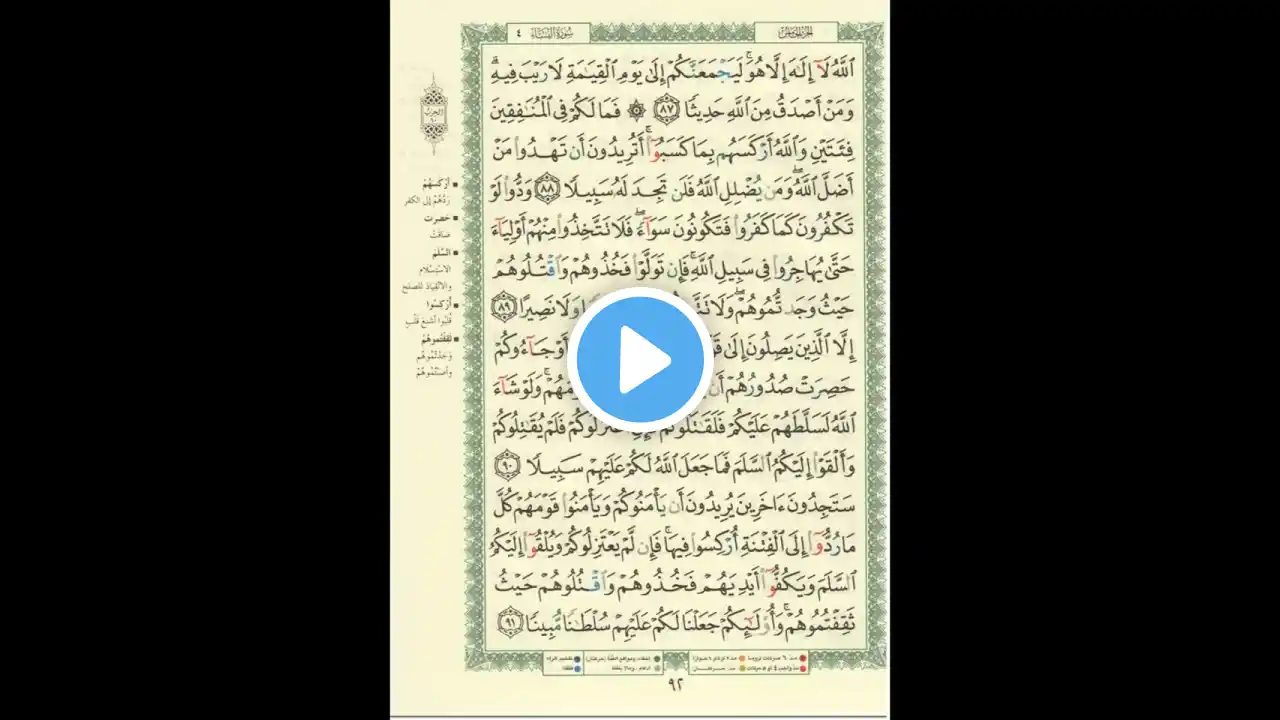 الجزء الخامس
سُورَةُ النِّسَاءِ ٤
ٱللَّهُ لَآ إِلَٰهَ إِلَّا هُوَۚ لَيَجْمَعَنَّكُمْ إِلَىٰ يَوْمِ ٱلْقِيَٰمَةِ لَا رَيْبَ فِيهِۗ
وَمَنْ أَصْدَقُ مِنَ ٱللَّهِ حَدِيثًا ٨٧ ۞ فَمَا لَكُمْ فِى ٱلْمُنَٰفِقِينَ
فِئَتَيْنِ وَٱللَّهُ أَرْكَسَهُم بِمَا كَسَبُوٓا۟ۚ أَتُرِيدُونَ أَن تَهْدُوا۟ مَنْ
أَضَلَّ ٱللَّهُۖ وَمَن يُضْلِلِ ٱللَّهُ فَلَن تَجِدَ لَهُۥ سَبِيلًا ٨٨ وَدُّوا۟ لَوْ
تَكْفُرُونَ كَمَا كَفَرُوا۟ فَتَكُونُونَ سَوَآءًۖ فَلَا تَتَّخِذُوا۟ مِنْهُمْ أَوْلِيَآءَ
حَتَّىٰ يُهَاجِرُوا۟ فِى سَبِيلِ ٱللَّهِۚ فَإِن تَوَلَّوْا۟ فَخُذُوهُمْ وَٱقْتُلُوهُمْ
حَيْثُ وَجَدتُّمُوهُمْۖ وَلَا وَلَا نَصِيرًا ٨٩
إِلَّا ٱلَّذِينَ يَصِلُونَ إِلَىٰ أَوْ جَآءُوكُمْ
حَصِرَتْ صُدُورُهُمْ أَن وَلَوْ شَآءَ
ٱللَّهُ لَسَلَّطَهُمْ عَلَيْكُمْ فَلَقَٰتَلُوكُمْۚ فَلَمْ يُقَٰتِلُوكُمْ
وَأَلْقَوْا۟ إِلَيْكُمُ ٱلسَّلَمَ فَمَا جَعَلَ ٱللَّهُ لَكُمْ عَلَيْهِمْ سَبِيلًا ٩٠
سَتَجِدُونَ ءَاخَرِينَ يُرِيدُونَ أَن يَأْمَنُوكُمْ وَيَأْمَنُوا۟ قَوْمَهُمْ كُلَّ
مَا رُدُّوٓا۟ إِلَى ٱلْفِتْنَةِ أُرْكِسُوا۟ فِيهَاۚ فَإِن لَّمْ يَعْتَزِلُوكُمْ وَيُلْقُوٓا۟ إِلَيْكُمُ
ٱلسَّلَمَ وَيَكُفُّوٓا۟ أَيْدِيَهُمْ فَخُذُوهُمْ وَٱقْتُلُوهُمْ حَيْثُ
ثَقِفْتُمُوهُمْۚ وَأُو۟لَٰٓئِكُمْ جَعَلْنَا لَكُمْ عَلَيْهِمْ سُلْطَٰنًا مُّبِينًا ٩١
الحزب
١٠
■ أَرْكَسَهُمْ
رَدَّهُمْ إلى الكفر
■ حَصِرَتْ
ضَاقَتْ
■ السَّلَمَ
الاسْتِسْلام
والانْقِيادَ للصلح
■ أُرْكِسُوا
قُلِبُوا أشنعَ قَلْبٍ
■ ثَقِفْتُمُوهُمْ
وَجَدْتُمُوهُمْ
وأصبْتُمُوهُمْ
٩٢